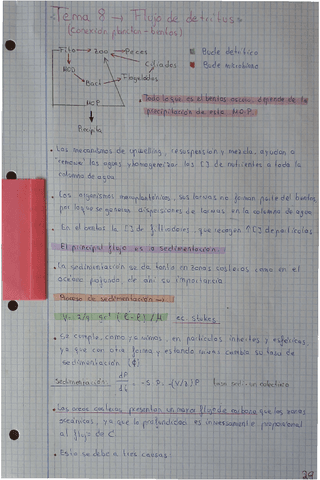 "Tema 8 → Flujo de detritus"
(conexión plancton-bentos)
Fito → zoo → Peces
Ciliados
MOD
Bact → Flagelados
MOP
Bucle detrítico
Bucle microbiano
• Todo lo que es el bentos depende de la
precipitación de esta M.O.P.
• Los mecanismos de upwelling, resuspensión y mezcla, ayudan a
"remover" las aguas y homogeneizar los [ ] de nutrientes a toda la
columna de agua.
• Los organismos meroplanctónicos, sus larvas no forman parte del bentos
por lo que se generan dispersiones de larvas en la columna de agua
• En el bentos la [ ] de filtradores, que recogen ↑[ ] de partículas
El principal flujo es la sedimentación
• La sedimentación se da tanto en zonas costeras como en el
océano, de ahí su importancia
Proceso de sedimentación →
ec. stokes
• Se cumple, como ya vimos, en partículas inertes y esféricas
ya que con otra forma y estando vivas cambia su tasa de
sedimentación (ϕ)
Sedimentación:
• Las zonas costeras presentan un mayor flujo de carbono que las zonas
oceánicas, ya que la profundidad es inversamente proporcional
al flujo de C.
• Esto se debe a tres causas